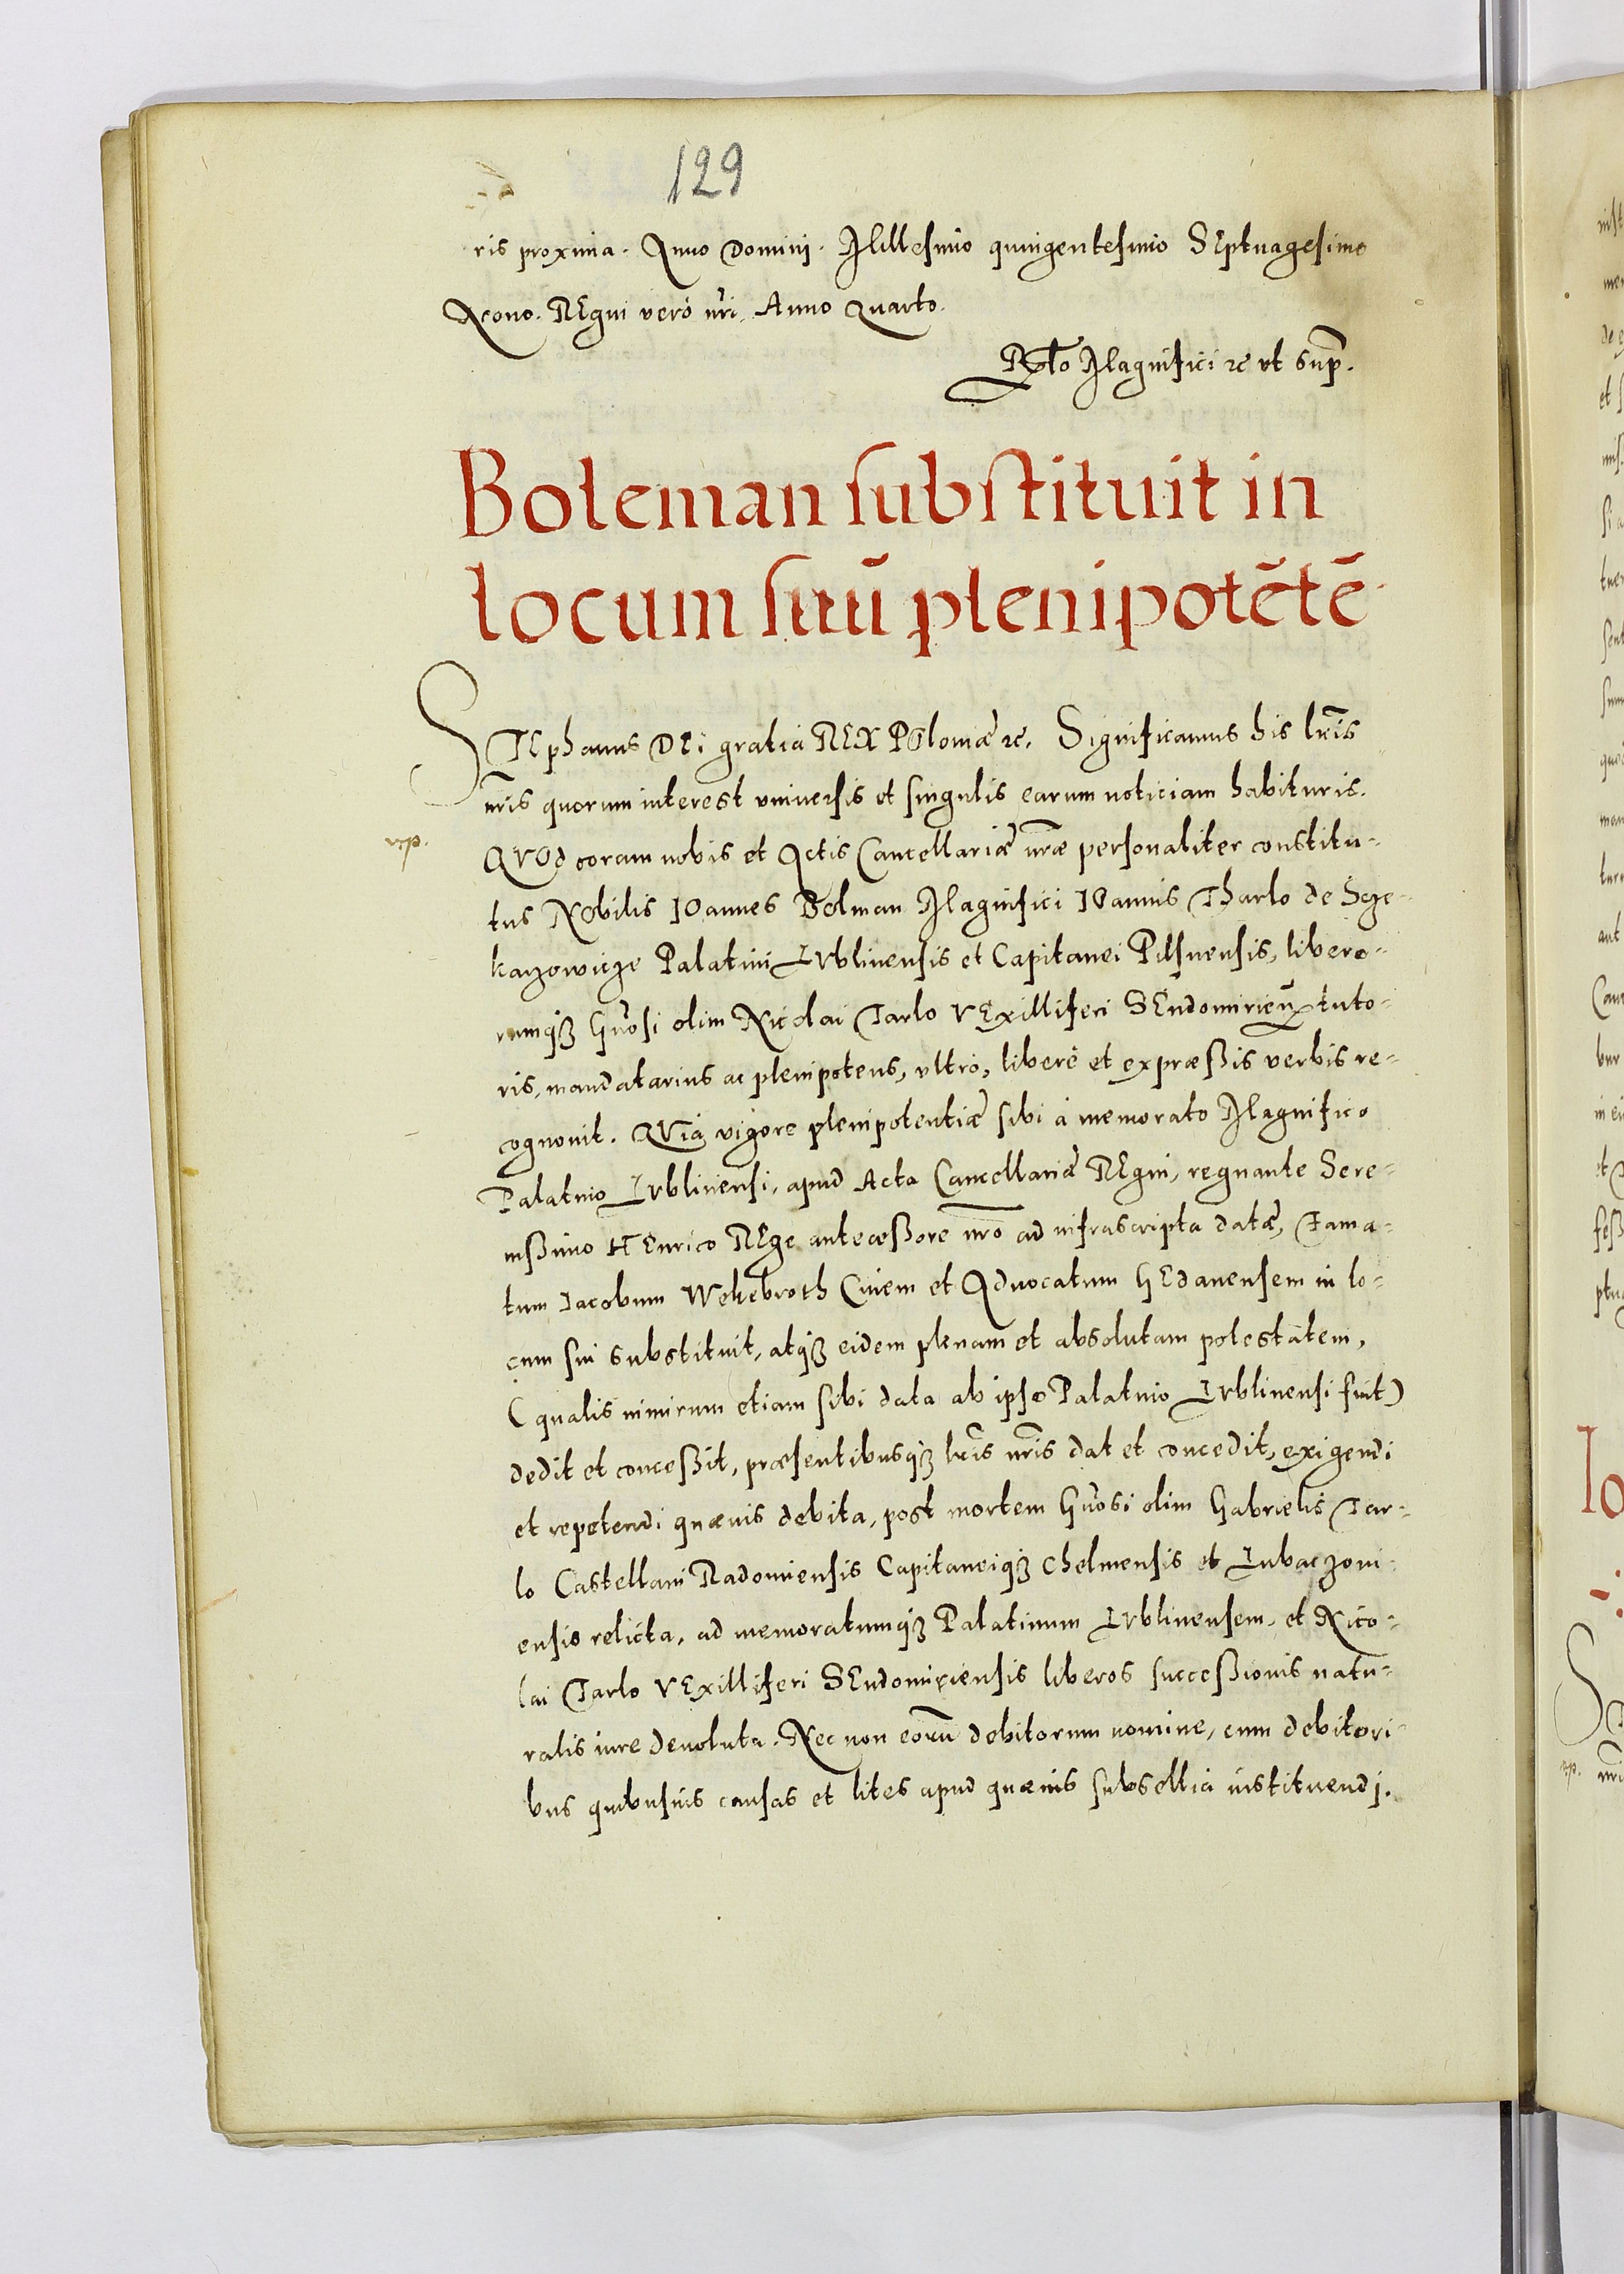 129
ris proxima. Anno Domini. Millesimo quingentesimo SEptuagesimo
Nono. REgni verò nr̃i, Anno Quarto.
Rela͠to Magnifici ꝛc vt sup͠.
Boleman substituit in
locum suū plenipotētē.
STEphanus DEi gratia REX POloniæ ꝛc. Significamus his lr̃is
nr̃is quorum interest vniuersis et singulis earum noticiam habituris.
QVOd coram nobis et Actis Cancellariæ nr̃æ personaliter constitu-
tus NObilis IOannes Bolman Magnifici IOannis Tharlo de Scze-
karzowicze Palatini LVblinensis et Capitanei Pilsnensis, libero-
rumq́ꝫ Gn̄osi olim Nicolai Tarlo VExilliferi SEndomirien̄ tuto-
ris, mandatarius ac plenipotens, vltrò, liberè et expræßis verbis re-
cognouit. QVia vigore plenipotentiæ sibi à memorato Magnifico
Palatino LVblinensi, apud Acta Cancellariæ REgni, regnante Sere-
nißimo HEnrico REge anteceßore nr̃o ad infrascripta datæ, Fama-
tum Iacobum Wekebroth Ciuem et Aduocatum GEdanensem in lo-
cum sui substituit, atq́ꝫ eidem plenam et absolutam potestatem,
(qualis nimirum etiam sibi data ab ipso Palatino LVblinensi fuit)
dedit et conceßit, præsentibusq́ꝫ lr̃is nr̃is dat et concedit, exigendi
et repetendi quæuis debita, post mortem Gn̄osi olim Gabrielis Tar-
lo Castellani Radomiensis Capitaneiq́ꝫ Chelmensis et Lubaczoui-
ensis relicta, ad memoratumq́ꝫ Palatinum LVblinensem, et Nico-
lai Tarlo VExilliferi SEndomiriensis liberos succeßionis natu-
ralis iure deuoluta. Nec non eorū debitorum nomine, cum debitori-
bus quibusuis causas et lites apud quæuis subsellia instituendi.